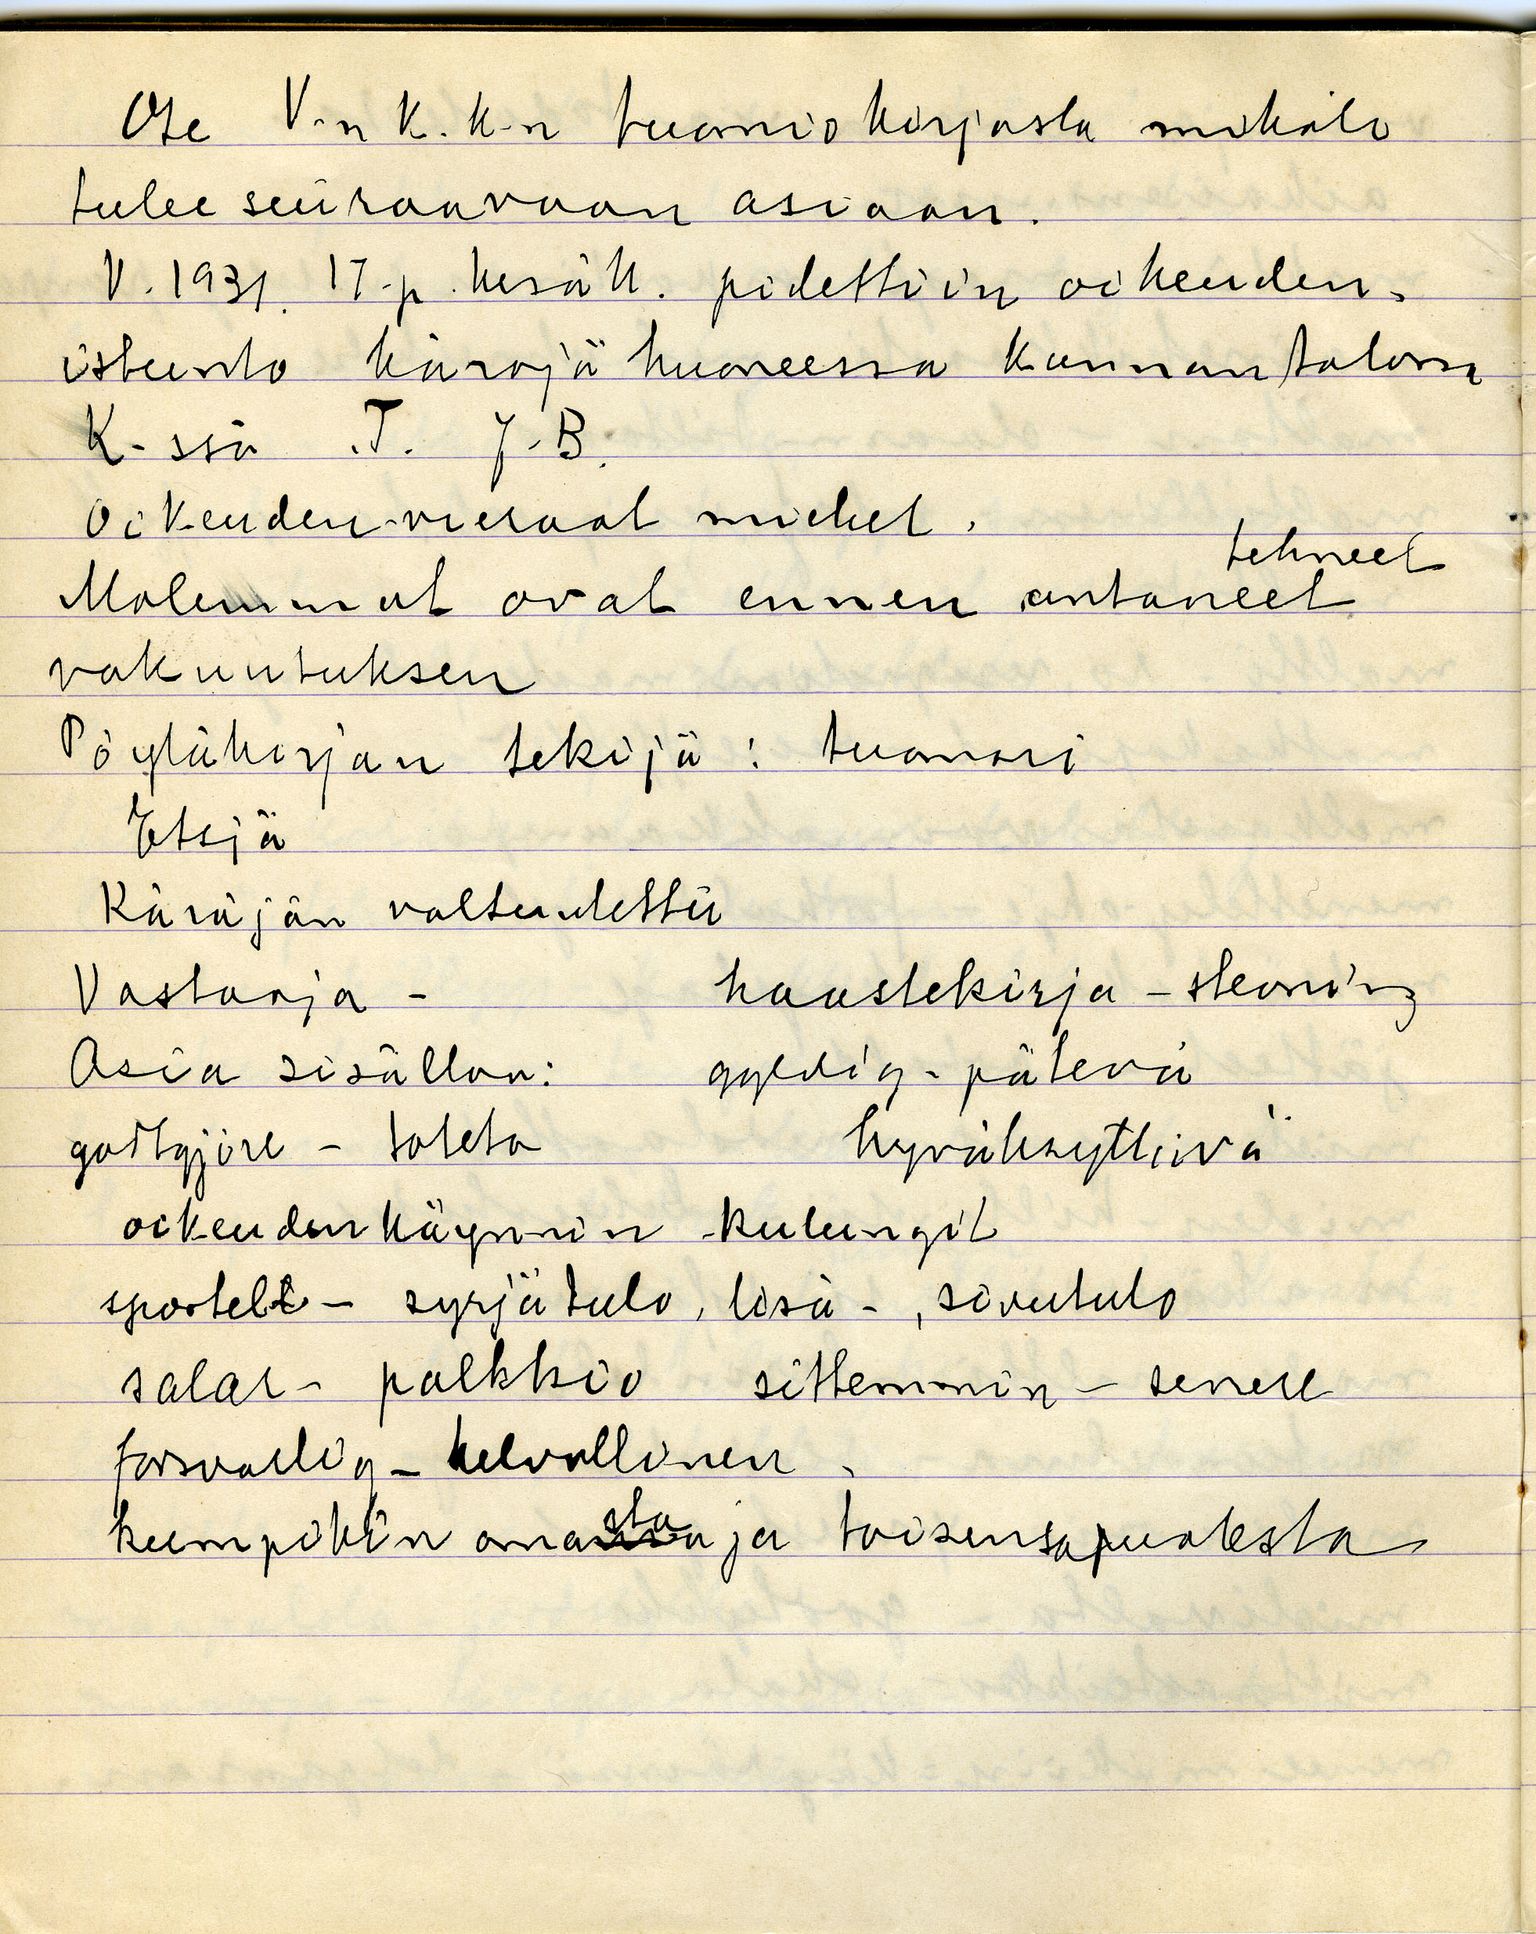 Ote V-n K.k-n tuomiokirjasta mikäli
tulee seuraavaan asiaan.
V. 1931. 17.p. kesäk. pidettiin oikeuden-
istunto käräjähuoneessa Kunnantalossa
K-ssä .T. J.B.
Oikeuden vieraat miehet.
tehneet
Molemmat ovat ennen antaneet
vakuutuksen
Pöytäkirjan tekijä: tuomari
Etsjä
Käräjän valtuutettu
Vastaaja - haastekirja - stevning
Asia sisällön: gyldig - pätevä
godtgjöre - toteta hyväksyttivä
oikeudenkäynnin kulungit
sportel - syrjätulo, lisä-, sivutulo
salær - palkkio sittemmin - senere
forsvarlig - kelvollinen
kumpikin omasta ja toisensa puolesta